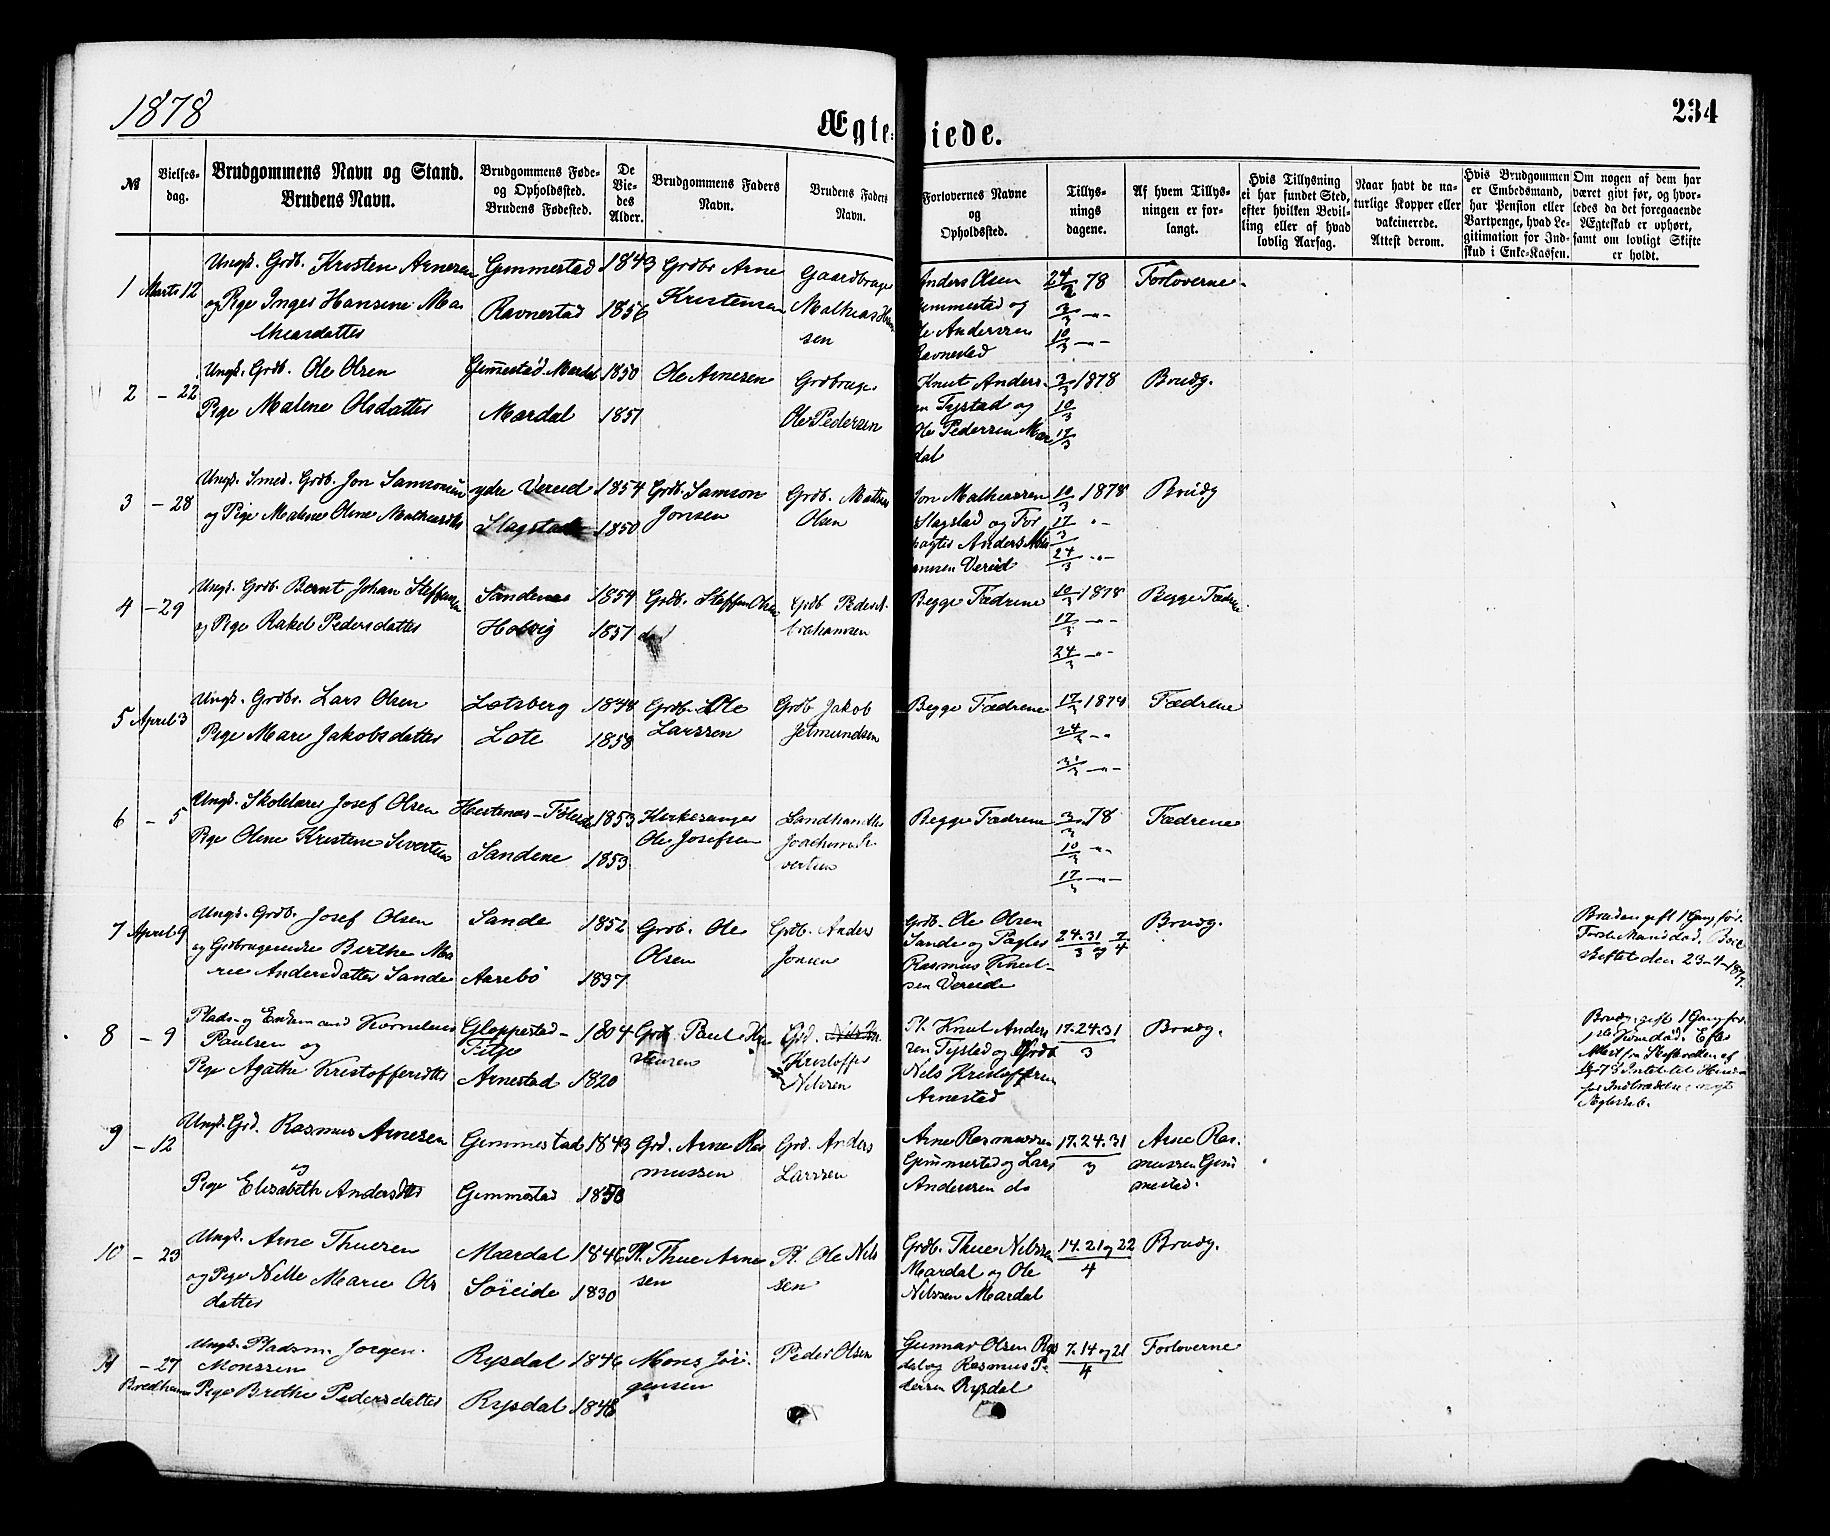 1878
Ægteviede.
234
№
Vielses-
dag.
Brudgommens Navn og Stand.
Brudens Navn.
Brudgommens Føde-
og Opholdssted.
Brudens Fødested.
De
Vie-
des
Alder.
Brudgommens Faders
Navn.
Brudens Faders
Navn.
Forlovernes Navne
og
Opholdssted.
Tillys-
nings
dagene.
Af hvem Tillys-
ningen er for-
langt.
Hvis Tillysning
ei har fundet Sted,
efter hvilken Bevil-
ling eller af hvad
lovlig Aarsag.
Naar havt de na-
turlige Kopper eller
vakcinerede.
Attest derom.
Hvis Brudgommen
er Embedsmand,
har Pension eller
Vartpenge, hvad Le-
gitimation for Ind-
skud i Enke-Kassen.
Om nogen af dem har
været givt før, og hvor-
ledes da det foregaaende
Ægteskab er ophørt,
samt om lovligt Skifte
er holdt.
1 Marts 12
Ungk. Grdb. Kristen Arnesen
og Pige Inger Hansine Ma-
thiasdatter
Gimmestad
Ravnestad
1843
1856
Grdbr Arne
Kristensen
Gaardbruger
Mathias Han
sen
Anders Olsen
Gimmestad og
Ole Anderssen
Ravnestad
24/2 78
3/3 -"-
10/3 -"-
Forloverne
2 – 22
Ungk. Grdb. Ole Olsen
Pige Malene Olsdatter
Gimmestad Mardal
Mardal
1850
1851
Ole Arnesen
Grdbruger
Ole Pedersen
Knut Anders-
sen Tystad og
Ole Pederssen Mar
dal
3/3 1878
10/3
17/3
Brudg.
3 – 28
Ungk. Smed. Grdb. Jon Samsonsen
og Pige Malene Oline Mathiasdtr
ydre Vereid
Slagstad
1854
1850
Grdb. Samson
Jonsen
Grdb. Mathias
Olsen
Jon Mathiassen
Slagstad og For
pagter Anders Mo
nssen Vereid
10/3 1878
17/3 "-
24/3 -"-
Brudg
4 – 29
Ungk. Grdb. Bernt Johan Steffensen
og Pige Rakel Pedersdatter
Sandene
Holvig
1854
1851
Grdb. Steffen Olsen
Grdb Peder A
brahamsen
Begge Fædrene
10/3 1878
17/3 -"-
24/3 -"-
Begge Fædrene
5 April 3
Ungk. Grdbr. Lars Olsen
Pige Mari Jakobsdatter
Lotsberg
Lote
1848
1858
Grdb. Ole
Larssen
Grdb Jakob
Jetmundsen
Begge Fædrene
17/3 1878
24/3 -"-
31/3 -"-
Fædrene
6 – 5
Ungk. Skolelærer Josef Olsen
Pige Oline Kristine Sivertsen
Hestenes –
Sandene
1853
1853
Kirkesanger
Ole Josefsen
Landhandler
Joachim Si
vertsen
Begge Fædrene
3/3 78
10/3 "-
17/3 -"-
Fædrene
7 April 9
Ungk. Grdb. Josef Olsen
og Grdbrugerenke Birthe Ma
rie Andersdatter Sande
Sande
Aarebø
1852
1837
Grdb. Ole
Olsen
Grdb. Anders
Jonsen
Grdb. Ole Olsen
Sande og Pagter
Rasmus Knut-
sen Vereide
24.31/3 og 7/4
Brudg.
Bruden gift 1 Gang før.
Første Mand død.
Skiftet den 23-4-1877.
8 – 9
Plads- og Enkemand Kornelius
Paulsen og
Pige Agathe Kristoffersdtr
Gloppestad-
Fitje
Arnestad
1804
1820
Grdb. Paul
Grd.
Kristoffer
Nilssen
Pl. Knut Anders
sen Tystad og Grdb
Nils Kristoffersen
Arnestad
17.24.31/3
Brudg.
Brudg. gift 1 Gang før.
Ægteskab.
9 – 12
Ungk. Grd. Rasmus Arnesen
og
Pige Elisabeth Andersdtr
Gimmestad
Gimmestad
1843
1850
Grd. Arne Ras
mussen
Grd. Anders
Larssen
Arne Rasmussen
Gimmestad og Lars
Anderssen do
17.24.31/3
Arne Ras-
mussen Gim
mestad.
10 – 23
Ungk. Arne Thuesen
og Pige Nille Marie Ols
datter
Mardal
Søreide
1846
1830
Pl. Thue Arne
sen
Pl. Ole Nils
sen
Grdb. Thue Nilssen
Mardal og Ole
Nilssen Mardal
14.21 og 22/4
Brudg.
11 – 27
Bredheim
Ungk. Pladsm. Jørgen
Monssen
Pige Brethe Pedersdatter
Rysdal
Rysdal
1846
1848
Mons Jør-
gensen
Peder Olsen
Gunnar Olsen Rys
dal og Rasmus Pe
derssen Rysdal
7.14 og 21/4
Forloverne